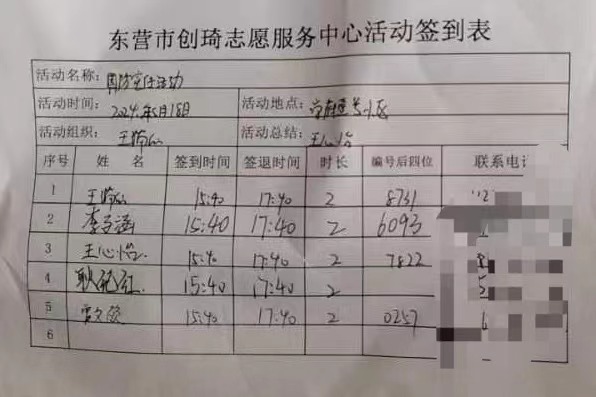 东营市创琦志愿服务中心活动签到表
活动名称: 国防宣传活动
活动时间: 2024年5月18日 活动地点: 小区
活动组织: 王 活动总结: 王心怡
序号 姓 名 签到时间 签退时间 时长 编号后四位 联系电话
1 王 15:40 17:40 2 8731
2 李 15:40 17:40 2 6093
3 王心怡 15:40 17:40 2 7822
4 耿 15:40 17:40 2
5 15:40 17:40 2 0257
6